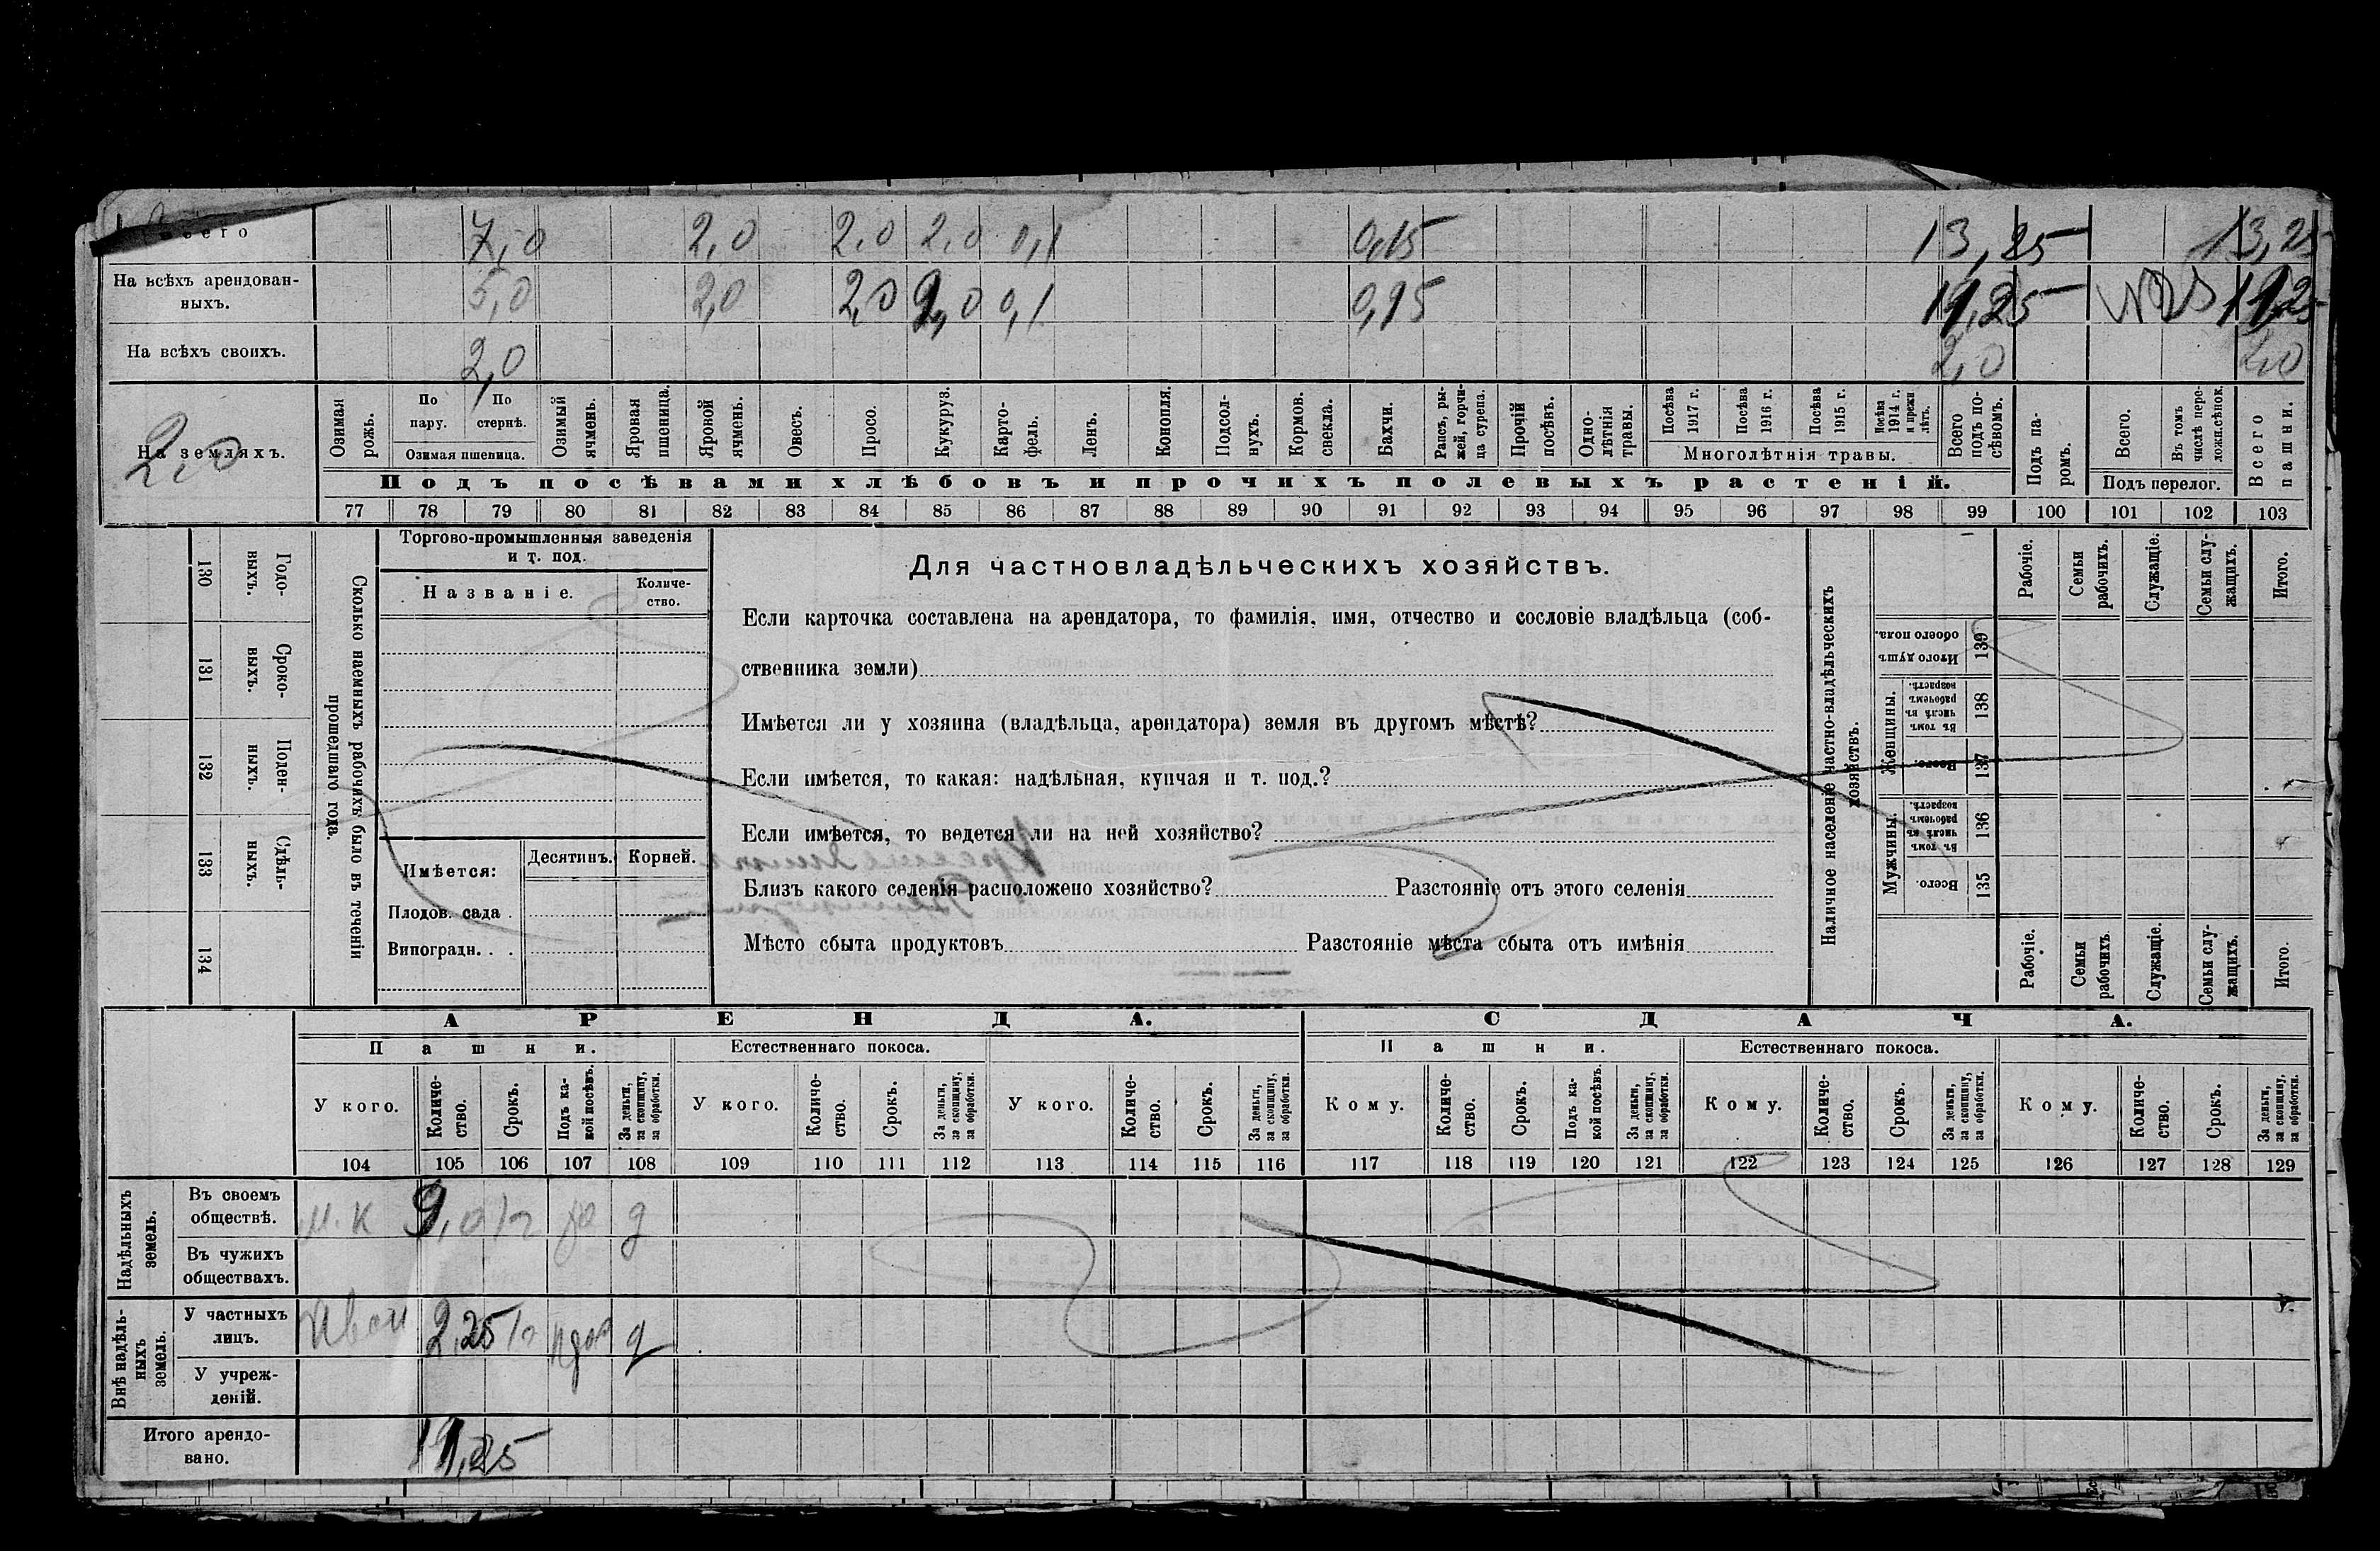 Всего 7,0 2,0 2,0 2,0 0,1 0,15 13,25 13,25
На всѣхъ арендован-
ныхъ. 5,0 2,0 2,0 2,0 0,1 0,15 11,25 11,25
На всѣхъ своихъ. 2,0 2,0 2,0
На земляхъ. 2,0
Озимая рожь.
По пару.
По стернѣ.
Озимая пшеница.
Озимый ячмень.
Яровая пшеница.
Яровой ячмень.
Овесъ.
Просо.
Кукуруз.
Карто-
фель.
Ленъ.
Конопля.
Подсол-
нухъ.
Кормов.
свекла.
Бахчи.
Рапсъ, ры-
жей, горчи-
ца сурепа.
Прочій
посѣвъ.
Одно-
лѣтнія
травы.
Посѣва 1917 г.
Посѣва 1916 г.
Посѣва 1915 г.
Посѣва 1914 г. и прежн лѣтъ.
Многолѣтнія травы.
Всего
подъ по-
сѣвомъ.
Подъ па-
ромъ.
Всего.
Въ томъ
числѣ пере-
ложн.сѣнок.
Подъ перелог.
Всего
пашни.
Подъ посѣвами хлѣбовъ и прочихъ полевыхъ растеній.
77 78 79 80 81 82 83 84 85 86 87 88 89 90 91 92 93 94 95 96 97 98 99 100 101 102 103
130 Годо-
выхъ.
131 Сроко-
выхъ.
132 Поден-
ныхъ.
133 Сдѣль-
ныхъ.
134
Сколько наемныхъ рабочихъ было въ теченіи
прошедшаго года.
Торгово-промышленныя заведенія
и т. под.
Названіе.
Количе-
ство.
Имѣется:
Десятинъ.
Корней.
Плодов. сада .
Виноградн. . .
Для частновладѣльческихъ хозяйствъ.
Если карточка составлена на арендатора, то фамилія, имя, отчество и сословіе владѣльца (соб-
ственника земли)
Имѣется ли у хозяина (владѣльца, арендатора) земля въ другомъ мѣстѣ?
Если имѣется, то какая: надѣльная, купчая и т. под.?
Если имѣется, то ведется ли на ней хозяйство?
Близъ какого селенія расположено хозяйство? Разстояніе отъ этого селенія
Мѣсто сбыта продуктовъ Разстояніе мѣста сбыта отъ имѣнія
Наличное населеніе частно-владѣльческихъ
хозяйствъ.
Рабочіе.
Семьи
рабочихъ.
Служащіе.
Семьи слу-
жащихъ.
Итого.
Итого душъ
обоего пола.
139
Женщины.
Въ томъ
числѣ въ
рабочемъ
возрастѣ.
138
Всего.
137
Мужчины.
Въ томъ
числѣ въ
рабочемъ
возрастѣ.
136
Всего.
135
Рабочіе.
Семьи
рабочихъ.
Служащіе.
Семьи слу-
жащихъ.
Итого.
АРЕНДА.
СДАЧА.
Пашни.
Естественнаго покоса.
Пашни.
Естественнаго покоса.
У кого.
Количе-
ство.
Срокъ.
Подъ ка-
кой посѣвъ.
За деньги,
за скопщину,
за обработки.
У кого.
Количе-
ство.
Срокъ.
За деньги,
за скопщину,
за обработки.
У кого.
Количе-
ство.
Срокъ.
За деньги,
за скопщину,
за обработки.
Кому.
Количе-
ство.
Срокъ.
Подъ ка-
кой посѣвъ.
За деньги,
за скопщину,
за обработки.
Кому.
Количе-
ство.
Срокъ.
За деньги,
за скопщину,
за обработки.
Кому.
Количе-
ство.
Срокъ.
За деньги,
за скопщину,
за обработки.
104 105 106 107 108 109 110 111 112 113 114 115 116 117 118 119 120 121 122 123 124 125 126 127 128 129
Надѣльныхъ
земель.
Въ своемъ
обществѣ. 9,0 д
Въ чужихъ
обществахъ.
Внѣ надѣль-
ныхъ
земель.
У частныхъ
лицъ. 2,25 д
У учреж-
деній.
Итого арендо-
вано. 11,25